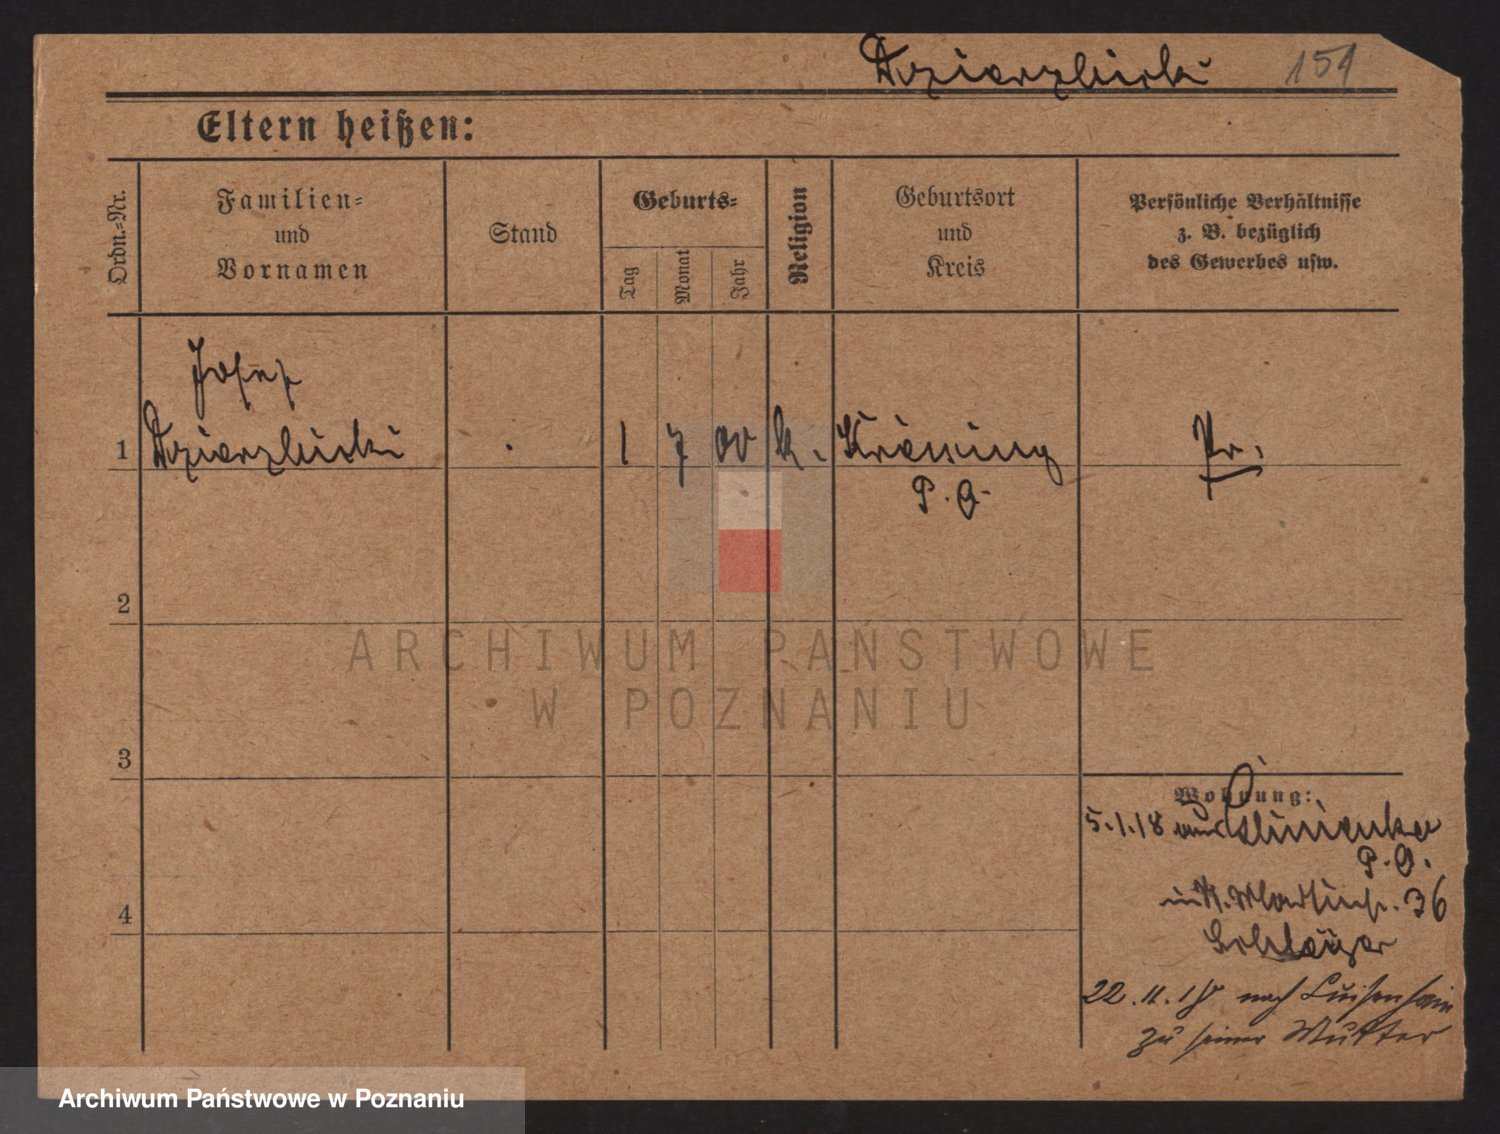 Dzierzbicki 151
Eltern heißen:
Ordn.=Nr.
Familien=
und
Vornamen
Stand
Geburts=
Tag
Monat
Jahr
Religion
Geburtsort
und
Kreis
Persönliche Verhältnisse
z. B. bezüglich
des Gewerbes usw.
Josef
1 Dzierzbicki . 1 7 00 k. Kröning Pr.
P. O.
2
ARCHIWUM PAŃSTWOWE
W POZNANIU
3
Wohnung:
5.1.18 aus
P. O.
36
4
22.11.18 nach Luisenhain
zu seiner Mutter
Archiwum Państwowe w Poznaniu